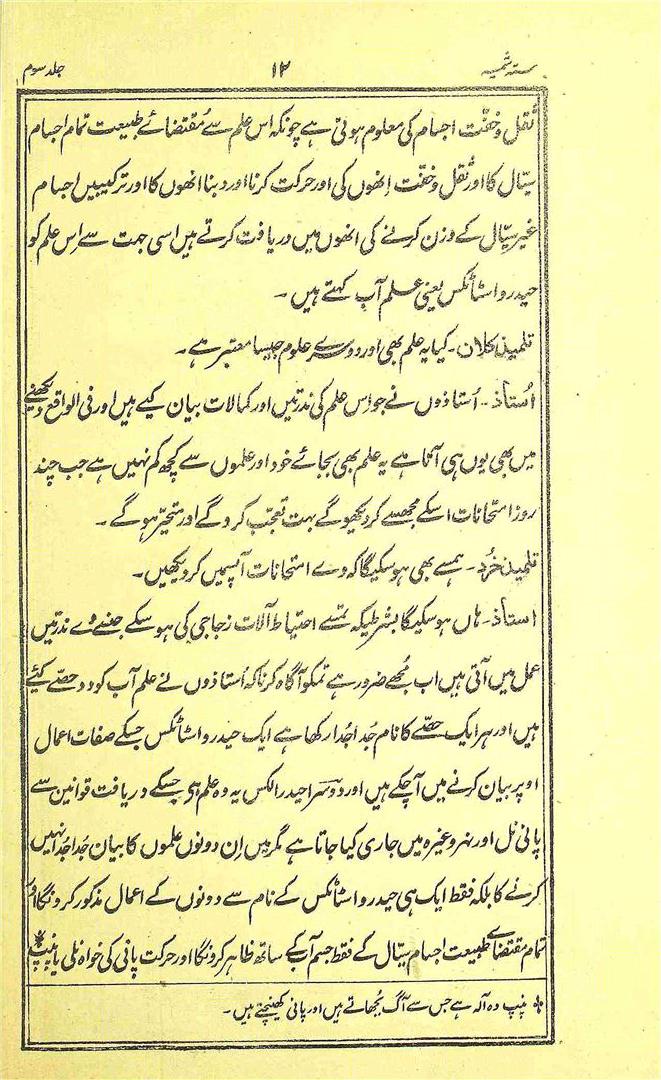 ستہ شمسیہ ۱۲ جلد سوم
ثقل و خفّت اجسام کی معلوم ہوتی ہے چونکہ اس علم سے مُقتضائے طبیعت تمام اجسام
سیّال کا اور ثُقل و خفّت اِنھوں کی اور حرکت کرنا اور دبنا انھوں کا اور ترکیبیں اجسام
غیر سیّال کے وزن کرنے کی انھوں میں دریافت کرتے ہیں اسی جہت سے اِس علم کو
حیدرو اسٹاٹکس یعنی علم آب کہتے ہیں ۔
تلمیذ کلان ۔ کیا یہ علم بھی اور دوسرے علوم جیسا معتبر ہے ۔
اُستاذ ۔ اُستاذوں نے جو اس علم کی نُدرتیں اور کمالات بیان کیے ہیں اور فی الواقع دیکھنے
میں بھی یوں ہی آتا ہے یہ علم بھی بجائے خود اور علموں سے کچھ کم نہیں ہے جب چند
روز امتحانات اسکے مجھسے کر دیکھوگے بہت تعجّب کروگے اور متحیّر ہوگے ۔
تلمیذ خُرد ۔ ہمسے بھی ہوسکیگا کہ وے امتحانات آپسمیں کر دیکھیں ۔
استاذ ۔ ہاں ہوسکیگا بشرطیکہ تمسے احتیاط آلات زجاجی کی ہوسکے جنسے وے ندرتیں
عمل میں آتی ہیں اب مُجھے ضرور ہے تمکو آگاہ کرنا کہ اُستاذوں نے علم آب کو دو حصّے کیئے
ہیں اور ہر ایک حصّے کا نام جُدا جُدا رکھا ہے ایک حیدرو اسٹاٹکس جسکے صفات اعمال
اوپر بیان کرنے میں آچکے ہیں اور دوسرا حیدرالکس یہ وہ علم ہی جسکے دریافت قوانین سے
پانی نل اور نہر وغیرہ میں جاری کیا جاتا ہے مگر میں اِن دونوں علموں کا بیان جُدا جُدا نہیں
کرنے کا بلکہ فقط ایک ہی حیدرو اسٹاٹکس کے نام سے دونوں کے اعمال مذکور کرونگا اور
تمام مقتضائے طبیعت اجسام سیّال کے فقط جسم آب کے ساتھ ظاہر کرونگا اور حرکت پانی کی خواہ نلی یا پنپ *
* پنپ وہ آلہ ہے جس سے آگ بُجھاتے ہیں اور پانی کھینچتے ہیں ۔